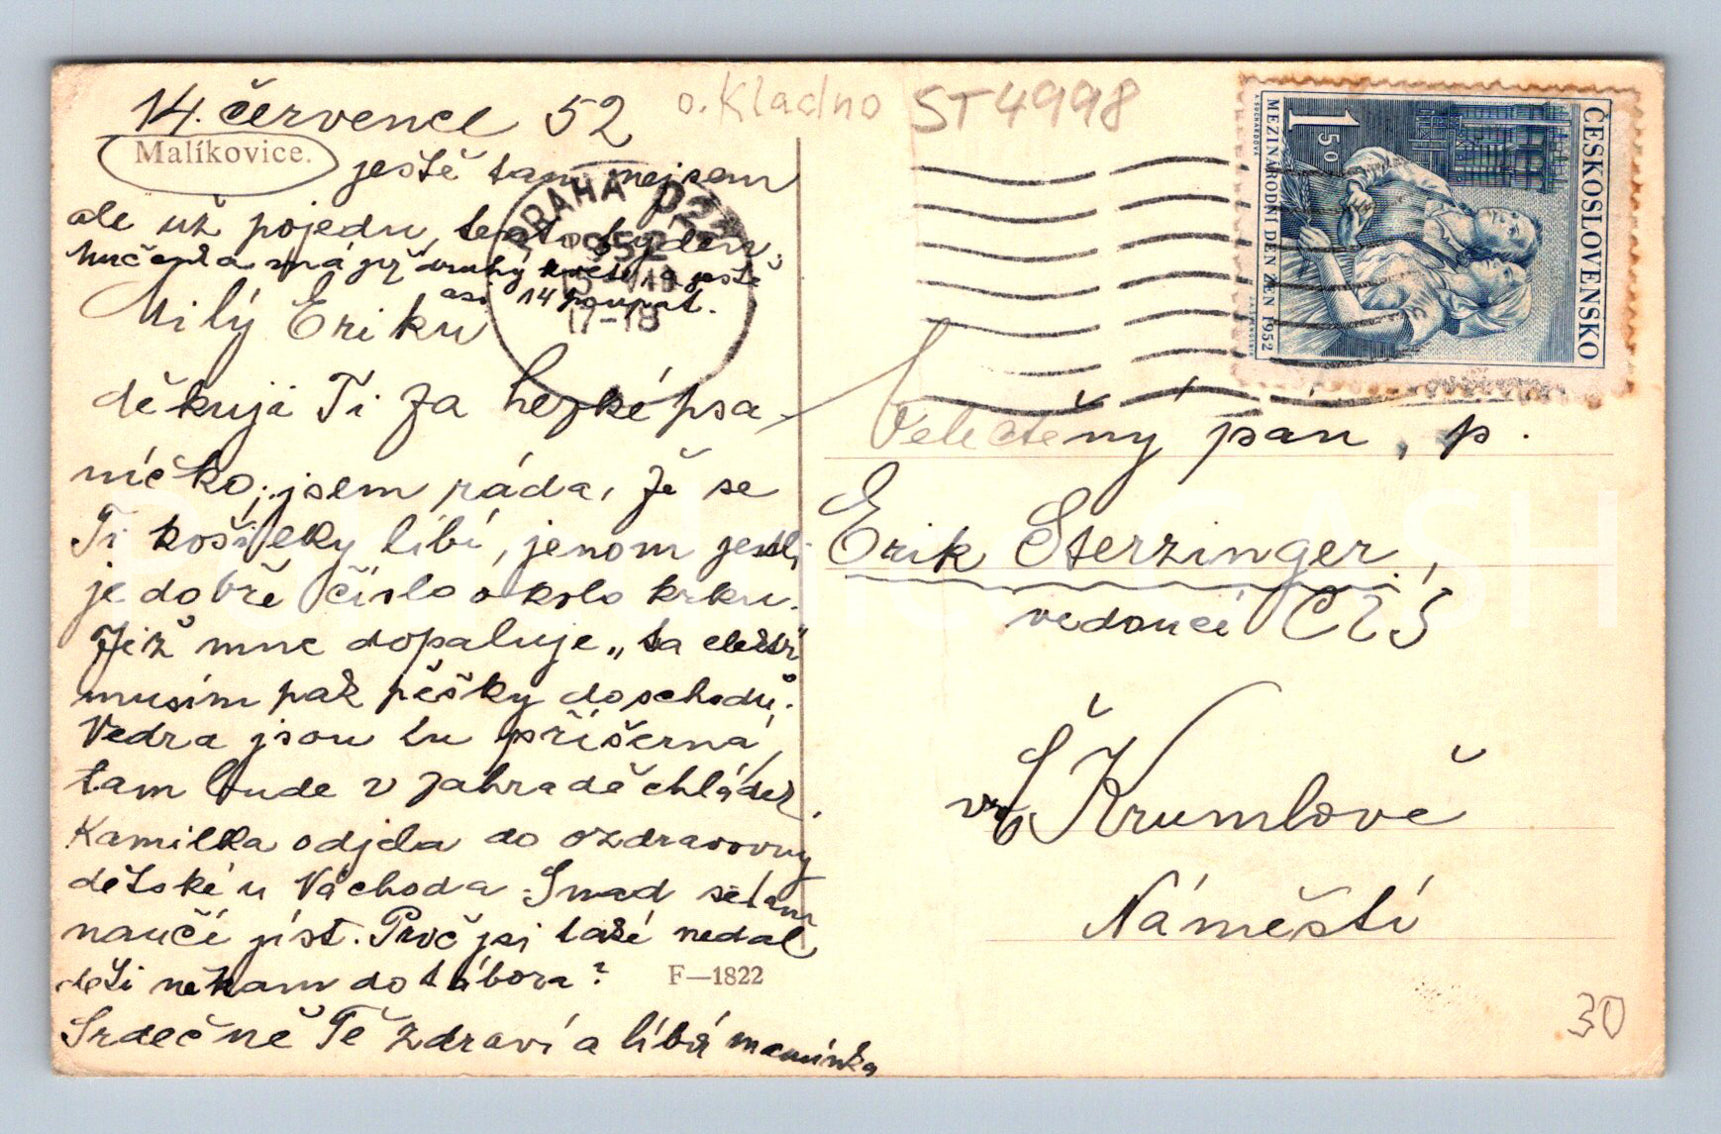 14. července 52
o. Kladno
ST4998
Malíkovice.
ještě tam nejsem
ale už pojedu tento týden,
má již druhý květ a ještě
asi 14 poupat.
Milý Eriku
děkuji Ti za hezké psa-
níčko, jsem ráda, že se
Ti košilky líbí, jenom jestli
je dobře číslo okolo krku.
Již mne dopaluje „ta
musím pak pěšky do schodů.
Vedra jsou tu příšerná,
tam bude v zahradě chládek.
Kamilka odjela do ozdravovny
dětské u Náchoda. Snad se tam
naučí jíst. Proč jsi také nedal
děti někam do tábora?
Srdečně Tě zdraví a líbá maminka
F—1822
PRAHA
1952
17-18
ČESKOSLOVENSKO
1 50
MEZINÁRODNÍ DEN ŽEN 1952
Velectěný pán, p.
Erik Sterzinger,
vedoucí ČTS
v Č. Krumlově
Náměstí
30